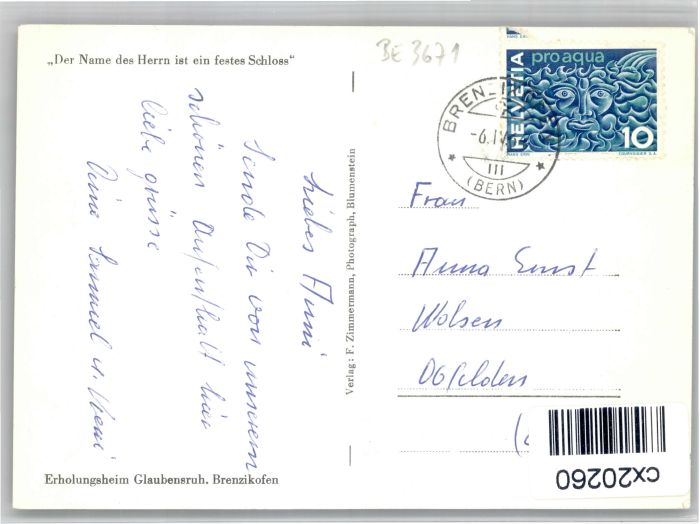 „Der Name des Herrn ist ein festes Schloss“
BE 3671
Liebes Anni
Sende Dir von unserem
schönen Aufenthalt hier
liebe grüsse
Samuel u.
Verlag: F. Zimmermann, Photograph, Blumenstein
HELVETIA
pro aqua
10
COURVOISIER S.A.
BREN
-6.IV
III
(BERN)
Frau
Anna Ernst
Wolsen
Obfelden
Erholungsheim Glaubensruh. Brenzikofen
cx20260